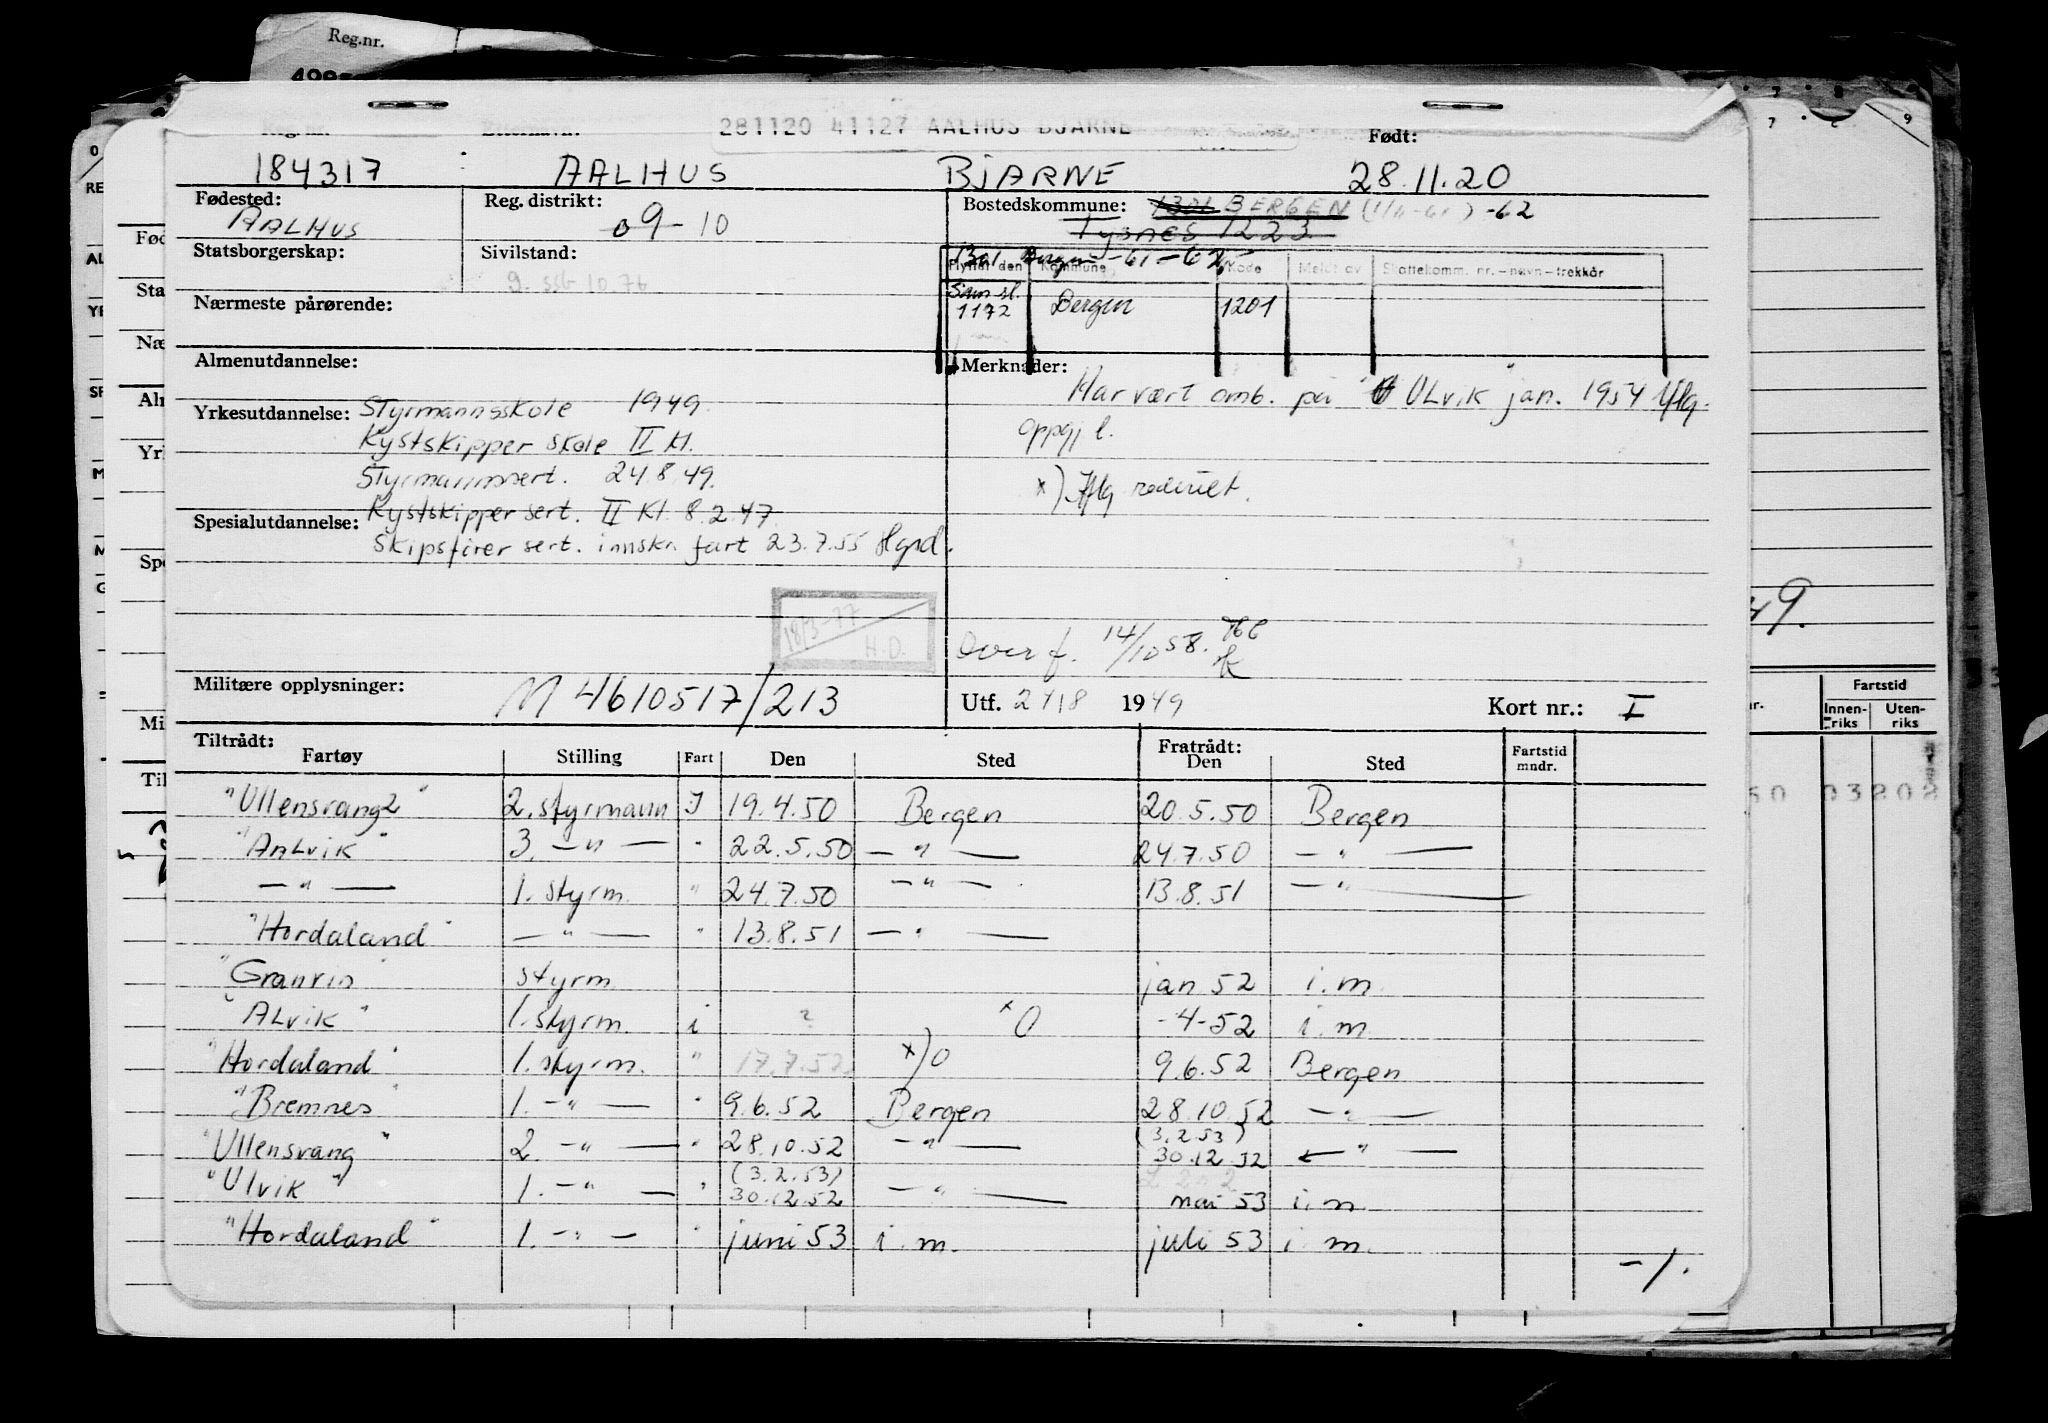 Reg.nr.
281120 41127 AALHUS BJARNE
Født:
184317 AALHUS BJARNE 28.11.20
Fødested: AALHUS
Reg. distrikt: 09-10
Bostedskommune: 1301 BERGEN -62
Tysnes 1223
Statsborgerskap:
Sivilstand:
1301 Bergen -61-62
9. ssb 10.76
Flyttet den Kommune Kode Meldt av Skattekomm. nr.-navn-trekkår
Nærmeste pårørende:
1172 Bergen 1201
Almenutdannelse:
Merknader:
Har vært omb. på "Ulvik" jan. 1954 iflg. oppgj l.
x) Iflg rederiet.
Yrkesutdannelse: Styrmannsskole 1949
Kystskipper skole II kl.
Styrmannssert. 24.8.49.
Kystskipper sert. II Kl. 8.2.47
Spesialutdannelse:
Skipsfører sert. innskr. fart 23.7.55
18/3-77
H.D.
Overf. 14/10 58.
Militære opplysninger: M 4610517/213
Utf. 1949
Kort nr.: I
Tiltrådt:
Fratrådt:
Fartøy Stilling Fart Den Sted Den Sted Fartstid mndr.
"Ullensvang2" 2. styrmann I 19.4.50 Bergen 20.5.50 Bergen
"Aalvik" 3. —"— " 22.5.50 —"— 24.7.50 —"—
—"— 1. styrm. " 24.7.50 —"— 13.8.51 —"—
"Hordaland" —"— " 13.8.51 —"—
"Granvin" styrm jan 52 i.m.
"Alvik" 1. styrm. i ? x O -4-52 i.m.
"Hordaland" 1. styrm. " 17.7.52 x) O 9.6.52 Bergen
"Bremnes" 1. —"— " 9.6.52 Bergen 28.10.52 —"—
"Ullensvang" 2. —"— " 28.10.52 —"— (3.2.53) 30.12.52 —"—
"Ulvik" 1. —"— " (3.2.53) 30.12.52 —"— mai 53 i.m.
"Hordaland" 1. —"— " juni 53 i.m. juli 53 i.m.
-/.
Fartstid
Innen-riks Uten-riks
03202